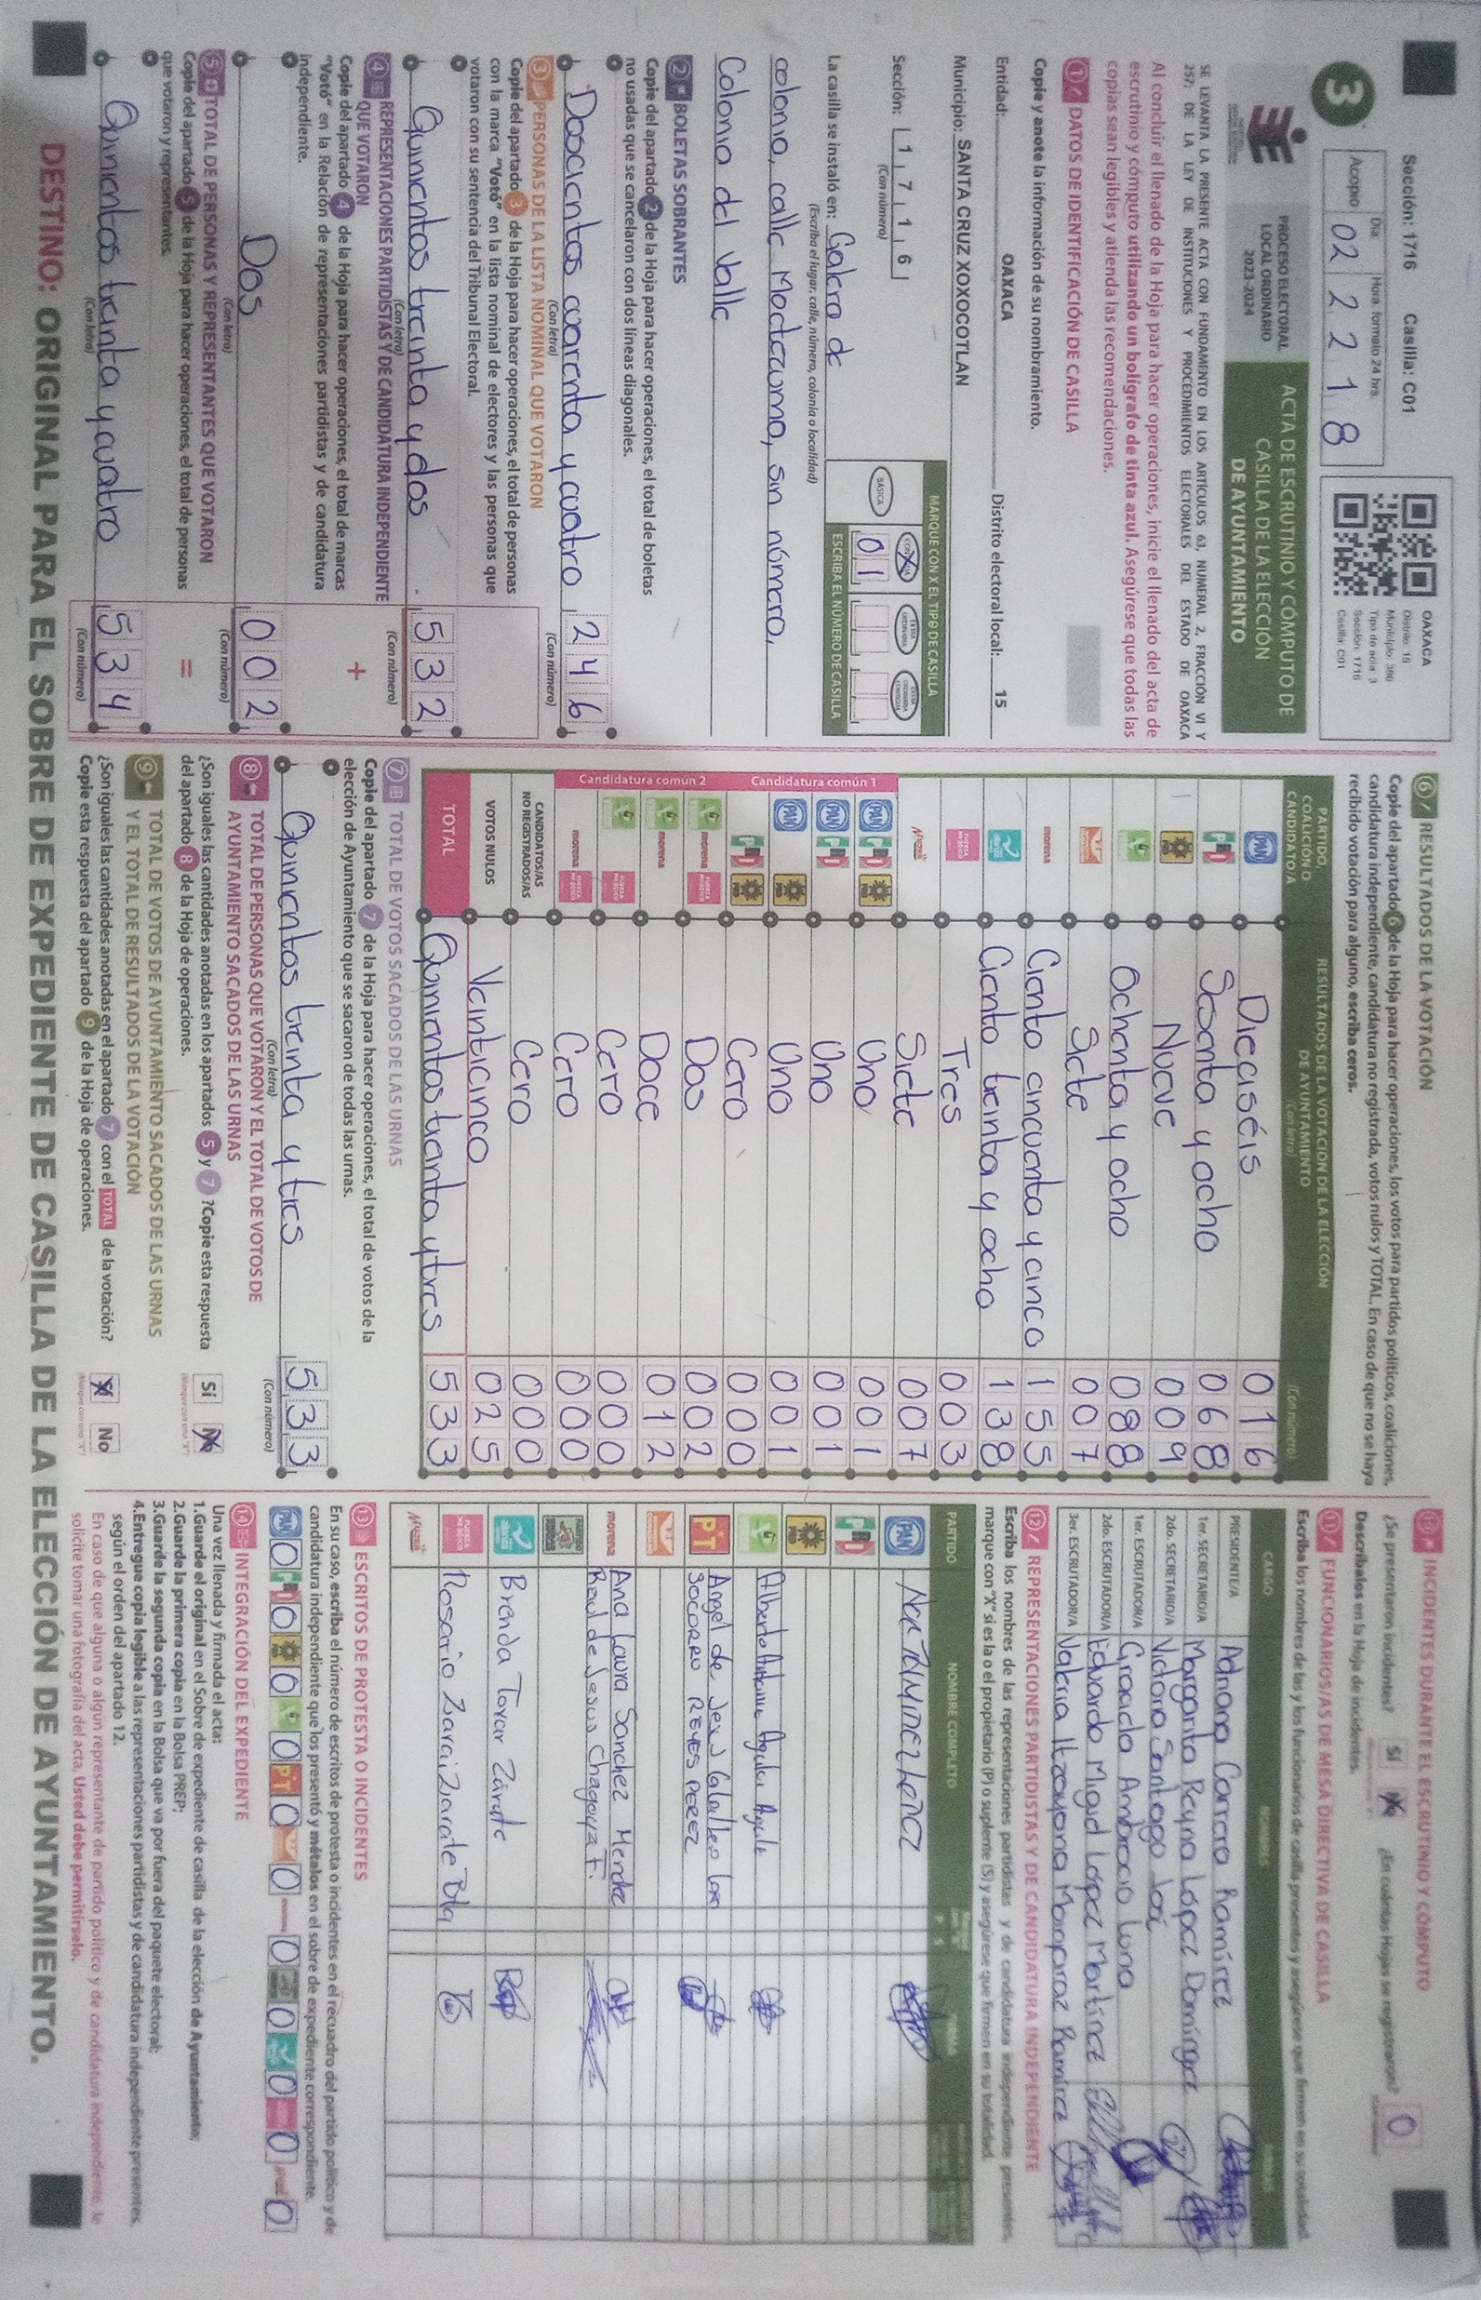 Sección: 1716 Casilla: C01
3
Día Hora: formato 24 hrs.
Acopio 02 22 18
OAXACA
Distrito: 15
Municipio: 386
Tipo de acta: 3
Sección: 1716
Casilla: C01
PROCESO ELECTORAL
LOCAL ORDINARIO
2023-2024
ACTA DE ESCRUTINIO Y CÓMPUTO DE
CASILLA DE LA ELECCIÓN
DE AYUNTAMIENTO
SE LEVANTA LA PRESENTE ACTA CON FUNDAMENTO EN LOS ARTÍCULOS 63, NUMERAL 2, FRACCIÓN VI Y
257; DE LA LEY DE INSTITUCIONES Y PROCEDIMIENTOS ELECTORALES DEL ESTADO DE OAXACA
Al concluir el llenado de la Hoja para hacer operaciones, inicie el llenado del acta de
escrutinio y cómputo utilizando un bolígrafo de tinta azul. Asegúrese que todas las
copias sean legibles y atienda las recomendaciones.
1 DATOS DE IDENTIFICACIÓN DE CASILLA
Copie y anote la información de su nombramiento.
Entidad: OAXACA Distrito electoral local: 15
Municipio: SANTA CRUZ XOXOCOTLAN
Sección: 1 7 1 6
(Con número)
MARQUE CON X EL TIPO DE CASILLA
BÁSICA
ESCRIBA EL NÚMERO DE CASILLA
01
La casilla se instaló en: Galera de
(Escriba el lugar, calle, número, colonia o localidad)
colonia, calle Moctezuma, sin número,
Colonia del Valle
2 BOLETAS SOBRANTES
Copie del apartado 2 de la Hoja para hacer operaciones, el total de boletas
no usadas que se cancelaron con dos líneas diagonales.
Doscientos cuarenta y cuatro 246
(Con letra) (Con número)
3 PERSONAS DE LA LISTA NOMINAL QUE VOTARON
Copie del apartado 3 de la Hoja para hacer operaciones, el total de personas
con la marca "Votó" en la lista nominal de electores y las personas que
votaron con su sentencia del Tribunal Electoral.
Quinientos treinta y dos 532
(Con letra) (Con número)
4 REPRESENTACIONES PARTIDISTAS Y DE CANDIDATURA INDEPENDIENTE
QUE VOTARON
+
Copie del apartado 4 de la Hoja para hacer operaciones, el total de marcas
"Votó" en la Relación de representaciones partidistas y de candidatura
independiente.
Dos 002
(Con letra) (Con número)
5 TOTAL DE PERSONAS Y REPRESENTANTES QUE VOTARON
=
Copie del apartado 5 de la Hoja para hacer operaciones, el total de personas
que votaron y representantes.
Quinientos treinta y cuatro 534
(Con letra) (Con número)
6 RESULTADOS DE LA VOTACIÓN
Copie del apartado 6 de la Hoja para hacer operaciones, los votos para partidos políticos, coaliciones,
candidatura independiente, candidatura no registrada, votos nulos y TOTAL. En caso de que no se haya
recibido votación para alguno, escriba ceros.
PARTIDO,
COALICIÓN O
CANDIDATO/A
RESULTADOS DE LA VOTACIÓN DE LA ELECCIÓN
DE AYUNTAMIENTO
(Con letra) (Con número)
PAN Dieciséis 016
PRI Sesenta y ocho 068
PRD Nueve 009
Ochenta y ocho 088
Siete 007
morena Ciento cincuenta y cinco 155
Ciento treinta y ocho 138
Tres 003
Mujer Siete 007
Candidatura común 1
PAN PRI PRD Uno 001
PAN PRI Uno 001
PAN PRD Uno 001
PRI PRD Cero 000
Candidatura común 2
morena Dos 002
morena Doce 012
Cero 000
morena Cero 000
CANDIDATOS/AS
NO REGISTRADOS/AS Cero 000
VOTOS NULOS Veinticinco 025
TOTAL Quinientos treinta y tres 533
7 TOTAL DE VOTOS SACADOS DE LAS URNAS
Copie del apartado 7 de la Hoja para hacer operaciones, el total de votos de la
elección de Ayuntamiento que se sacaron de todas las urnas.
Quinientos treinta y tres 533
(Con letra) (Con número)
8 TOTAL DE PERSONAS QUE VOTARON Y EL TOTAL DE VOTOS DE
AYUNTAMIENTO SACADOS DE LAS URNAS
¿Son iguales las cantidades anotadas en los apartados 5 y 7 ?Copie esta respuesta
del apartado 8 de la Hoja de operaciones.
Sí No
9 TOTAL DE VOTOS DE AYUNTAMIENTO SACADOS DE LAS URNAS
Y EL TOTAL DE RESULTADOS DE LA VOTACIÓN
¿Son iguales las cantidades anotadas en el apartado 7 con el TOTAL de la votación?
Copie esta respuesta del apartado 9 de la Hoja de operaciones.
Sí No
10 INCIDENTES DURANTE EL ESCRUTINIO Y CÓMPUTO
¿Se presentaron incidentes? Sí No ¿En cuántas Hojas se registraron? 0
Descríbalos en la Hoja de incidentes.
11 FUNCIONARIOS/AS DE MESA DIRECTIVA DE CASILLA
Escriba los nombres de las y los funcionarios de casilla presentes y asegúrese que firmen en su totalidad.
CARGO NOMBRES FIRMAS
PRESIDENTE/A Adriana Carrera Ramírez
1er. SECRETARIO/A Margarita Reyna López Domínguez
2do. SECRETARIO/A Victoria Santiago José
1er. ESCRUTADOR/A Graciela Ambrocio Luna
2do. ESCRUTADOR/A Eduardo Miguel López Martínez
3er. ESCRUTADOR/A Valeria Itzayana Manzanarez Ramírez
12 REPRESENTACIONES PARTIDISTAS Y DE CANDIDATURA INDEPENDIENTE
Escriba los nombres de las representaciones partidistas y de candidatura independiente presentes,
marque con "X" si es la o el propietario (P) o suplente (S) y asegúrese que firmen en su totalidad.
PARTIDO NOMBRE COMPLETO P S FIRMA
PAN
PRI
PRD
Alberto Antonio Aguilar Aguilar
PT Angel de Jesus
SOCORRO REYES PEREZ
morena Ana Laura Sanchez Mendez
Raul de Jesus Chagoya T.
Brenda Tovar Zárate
Rosario Zarai Zarate Tola
Mujer
13 ESCRITOS DE PROTESTA O INCIDENTES
En su caso, escriba el número de escritos de protesta o incidentes en el recuadro del partido político y de
candidatura independiente que los presentó y métalos en el sobre de expediente correspondiente.
PAN 0 PRI 0 PRD 0 0 PT 0 0 0 0 0 0 0
14 INTEGRACIÓN DEL EXPEDIENTE
Una vez llenada y firmada el acta:
1.Guarde el original en el Sobre de expediente de casilla de la elección de Ayuntamiento;
2.Guarde la primera copia en la Bolsa PREP;
3.Guarde la segunda copia en la Bolsa que va por fuera del paquete electoral;
4.Entregue copia legible a las representaciones partidistas y de candidatura independiente presentes,
según el orden del apartado 12.
En caso de que alguna o algún representante de partido político y de candidatura independiente, le
solicite tomar una fotografía del acta, Usted debe permitírselo.
DESTINO: ORIGINAL PARA EL SOBRE DE EXPEDIENTE DE CASILLA DE LA ELECCIÓN DE AYUNTAMIENTO.